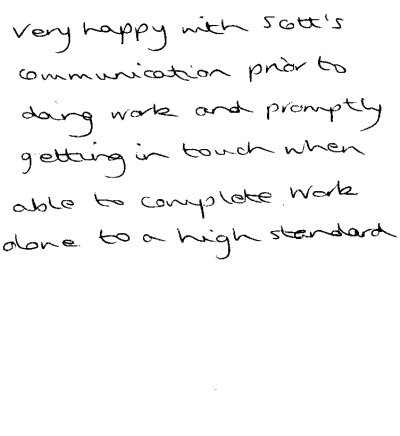 Very happy with Scott's
communication prior to
doing work and promptly
getting in touch when
able to complete. Work
done to a high standard